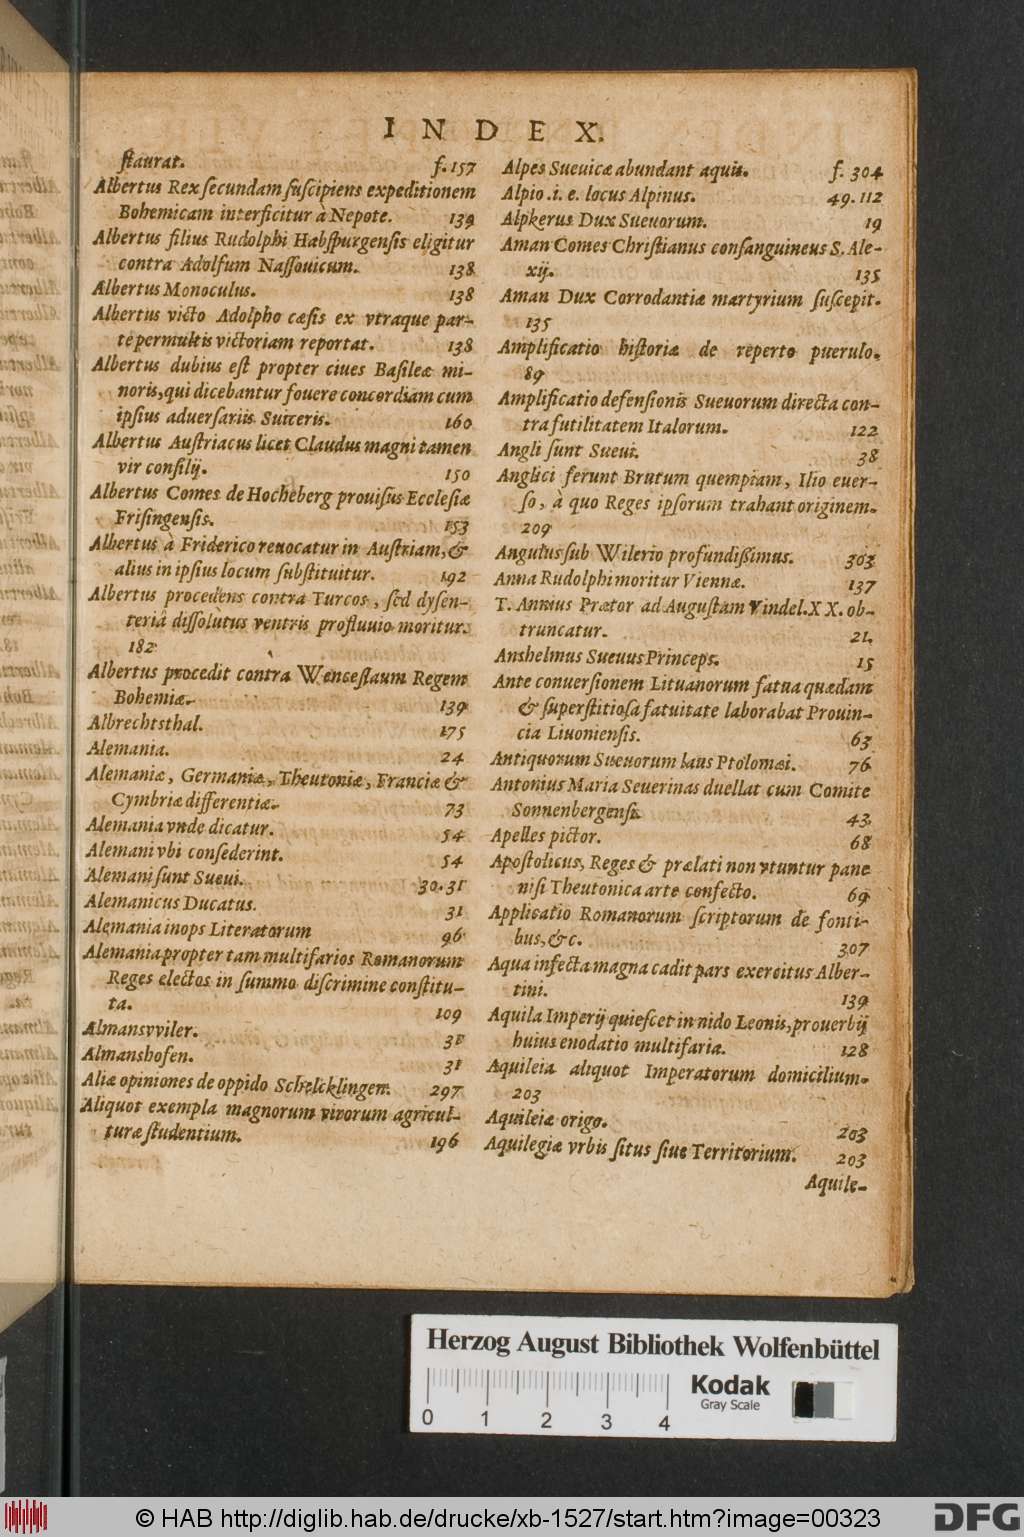 INDEX.
ſtaurat. f. 157
Albertus Rex ſecundam ſuſcipiens expeditionem
Bohemicam interficitur à Nepote. 139
Albertus filius Rudolphi Habſpurgenſis eligitur
contra Adolfum Naſſouicum. 138
Albertus Monoculus. 138
Albertus victo Adolpho cæſis ex vtraque par-
te permultis victoriam reportat. 138
Albertus dubius eſt propter ciues Baſileæ mi-
noris, qui dicebantur fouere concordiam cum
ipſius aduerſariis Suiceris. 160
Albertus Auſtriacus licet Claudus magni tamen
vir conſilij. 150
Albertus Comes de Hocheberg prouiſus Eccleſiæ
Friſingenſis. 153
Albertus à Friderico reuocatur in Auſtriam, &
alius in ipſius locum ſubſtituitur. 192
Albertus procedens contra Turcos, ſed dyſen-
teriâ diſſolutus ventris profluuio moritur.
182
Albertus procedit contra Wenceſlaum Regem
Bohemiæ. 139
Albrechtsthal. 175
Alemania. 24
Alemaniæ, Germaniæ, Theutoniæ, Franciæ &
Cymbriæ differentiæ. 73
Alemania vnde dicatur. 54
Alemani vbi conſederint. 54
Alemani ſunt Sueui. 30. 31
Alemanicus Ducatus. 31
Alemania inops Literatorum 96
Alemania propter tam multifarios Romanorum
Reges electos in ſummo diſcrimine conſtitu-
ta. 109
Almansvviler. 31
Almanshofen. 31
Aliæ opiniones de oppido Schelcklingem. 297
Aliquot exempla magnorum virorum agricul-
turæ ſtudentium. 196
Alpes Sueuicæ abundant aquis. f. 304
Alpio .i. e. locus Alpinus. 49. 112
Alpkerus Dux Sueuorum. 19
Aman Comes Chriſtianus conſanguineus S. Ale-
xij. 135
Aman Dux Corrodantiæ martyrium ſuſcepit.
135
Amplificatio hiſtoriæ de reperto puerulo.
89
Amplificatio defenſionis Sueuorum directa con-
tra futilitatem Italorum. 122
Angli ſunt Sueui. 38
Anglici ferunt Brutum quempiam, Ilio euer-
ſo, à quo Reges ipſorum trahant originem.
209
Angulus ſub Wilerio profundißimus. 303
Anna Rudolphi moritur Viennæ. 137
T. Annius Prætor ad Auguſtam Vindel. XX. ob-
truncatur. 21.
Anshelmus Sueuus Princeps. 15
Ante conuerſionem Lituanorum fatua quædam
& ſuperſtitioſa fatuitate laborabat Prouin-
cia Liuonienſis. 63
Antiquorum Sueuorum laus Ptolomæi. 76
Antonius Maria Seuerinas duellat cum Comite
Sonnenbergenſi. 43.
Apelles pictor. 68
Apoſtolicus, Reges & prælati non vtuntur pane
niſi Theutonica arte confecto. 69
Applicatio Romanorum ſcriptorum de fonti-
bus, &c. 307
Aqua infecta magna cadit pars exercitus Alber-
tini. 139
Aquila Imperij quieſcet in nido Leonis, prouerbij
huius enodatio multifaria. 128
Aquileia aliquot Imperatorum domicilium.
203
Aquileiæ origo. 203
Aquilegiæ vrbis ſitus ſiue Territorium. 203
Aquile-
Herzog August Bibliothek Wolfenbüttel
Kodak
Gray Scale
0 1 2 3 4
© HAB http://diglib.hab.de/drucke/xb-1527/start.htm?image=00323
DFG